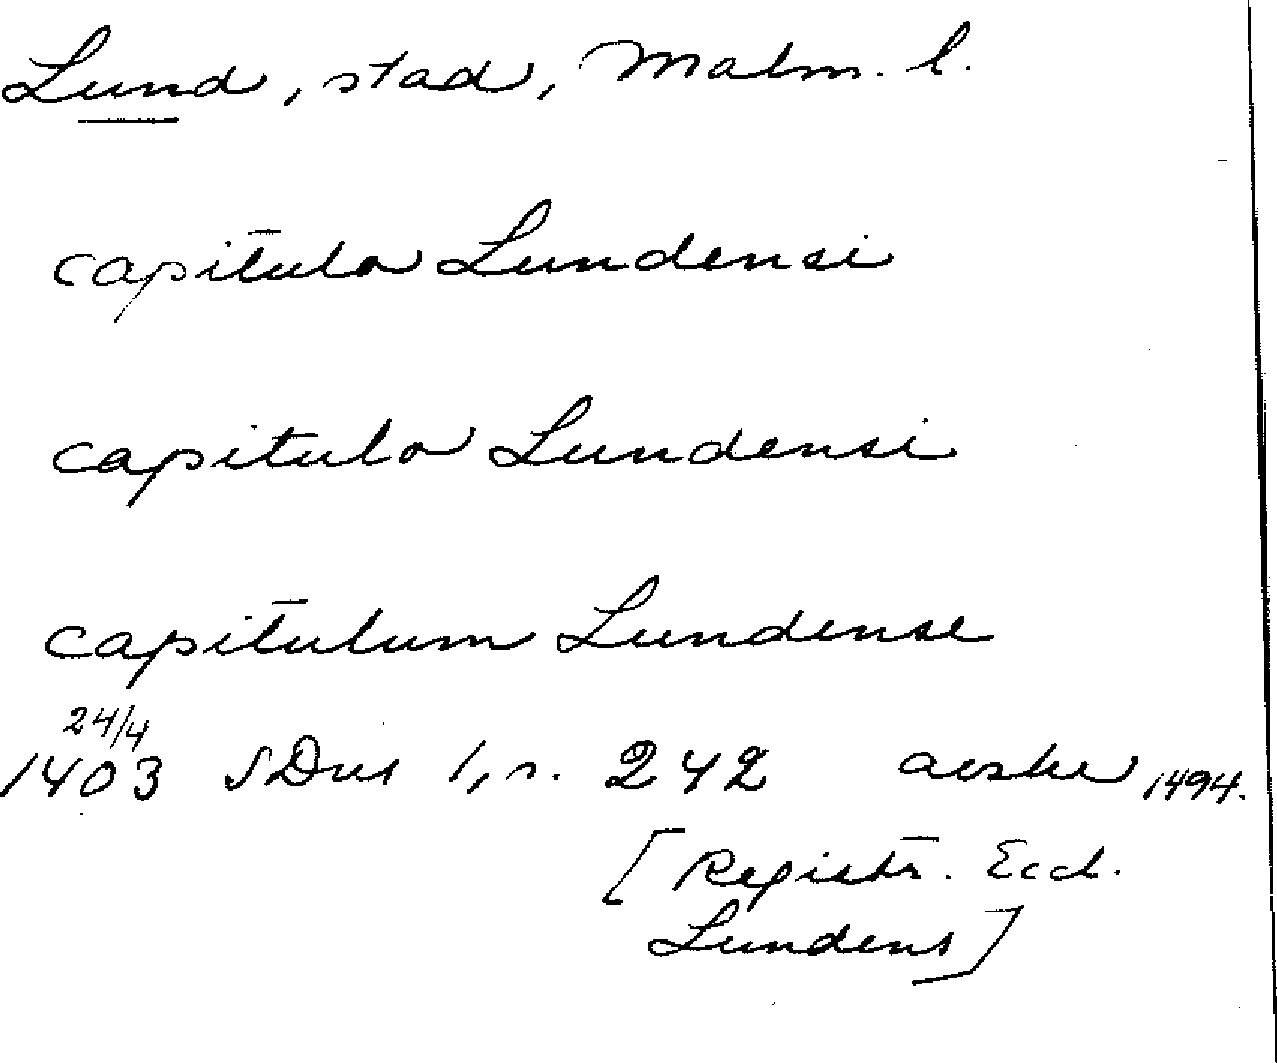 Lund, stad, Malm. l.
capitulo Lundensi
capitulo Lundensi
capitulum Lundense
24/4
1403 SDns 1, s. 242 avskr 1494.
[Registr. Eccl.
Lundens]